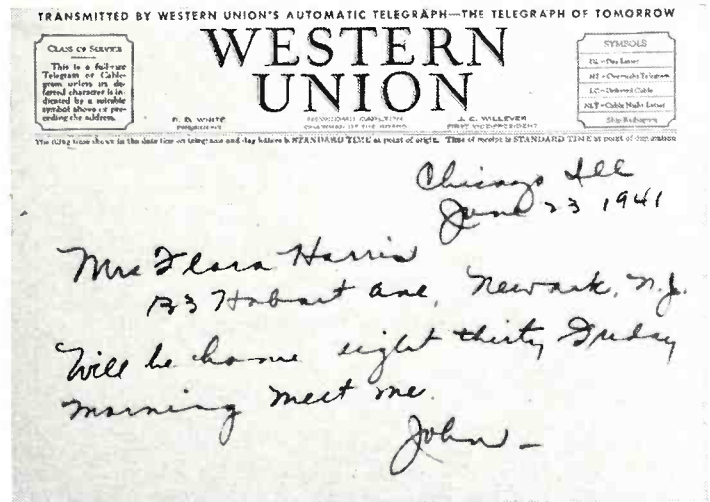 TRANSMITTED BY WESTERN UNION'S AUTOMATIC TELEGRAPH—THE TELEGRAPH OF TOMORROW
CLASS OF SERVICE
This is a full-rate
Telegram or Cable-
gram unless its de-
ferred character is in-
dicated by a suitable
symbol above or pre-
ceding the address.
WESTERN
UNION
R. B. WHITE
PRESIDENT
NEWCOMB CARLTON
CHAIRMAN OF THE BOARD
J. C. WILLEVER
FIRST VICE-PRESIDENT
SYMBOLS
DL = Day Letter
NT = Overnight Telegram
LC = Deferred Cable
NLT = Cable Night Letter
Ship Radiogram
The filing time shown in the date line on telegrams and day letters is STANDARD TIME at point of origin. Time of receipt is STANDARD TIME at point of destination
Chicago Ill
June 23 1941
Mrs Flora Harris
123 Hobart Ave, Newark, N.J.
Will be home eight thirty Friday
morning meet me.
John –